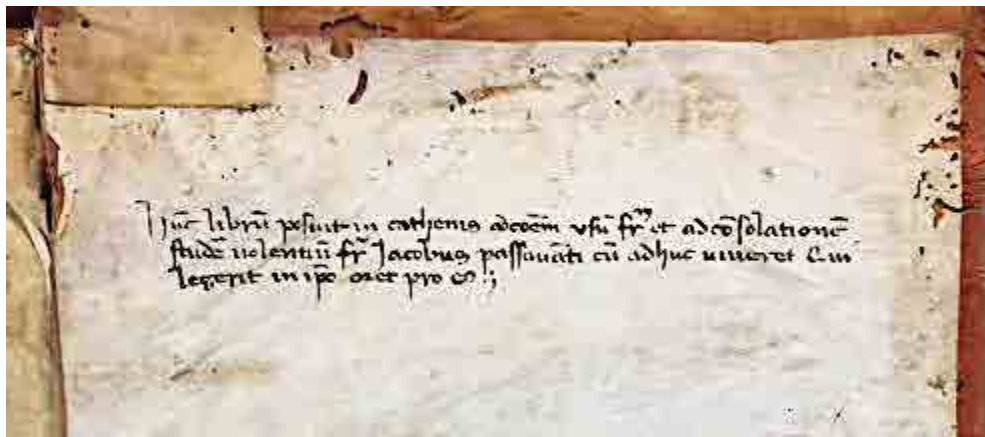 Hūc librū posuit in cathenis adcōēm usū fr̄m et ad cōsolationē
studē uolentiū fr̄ Jacobus passauāti cū adhuc uiueret Qui
legerit in ip̄o oret pro eo :;